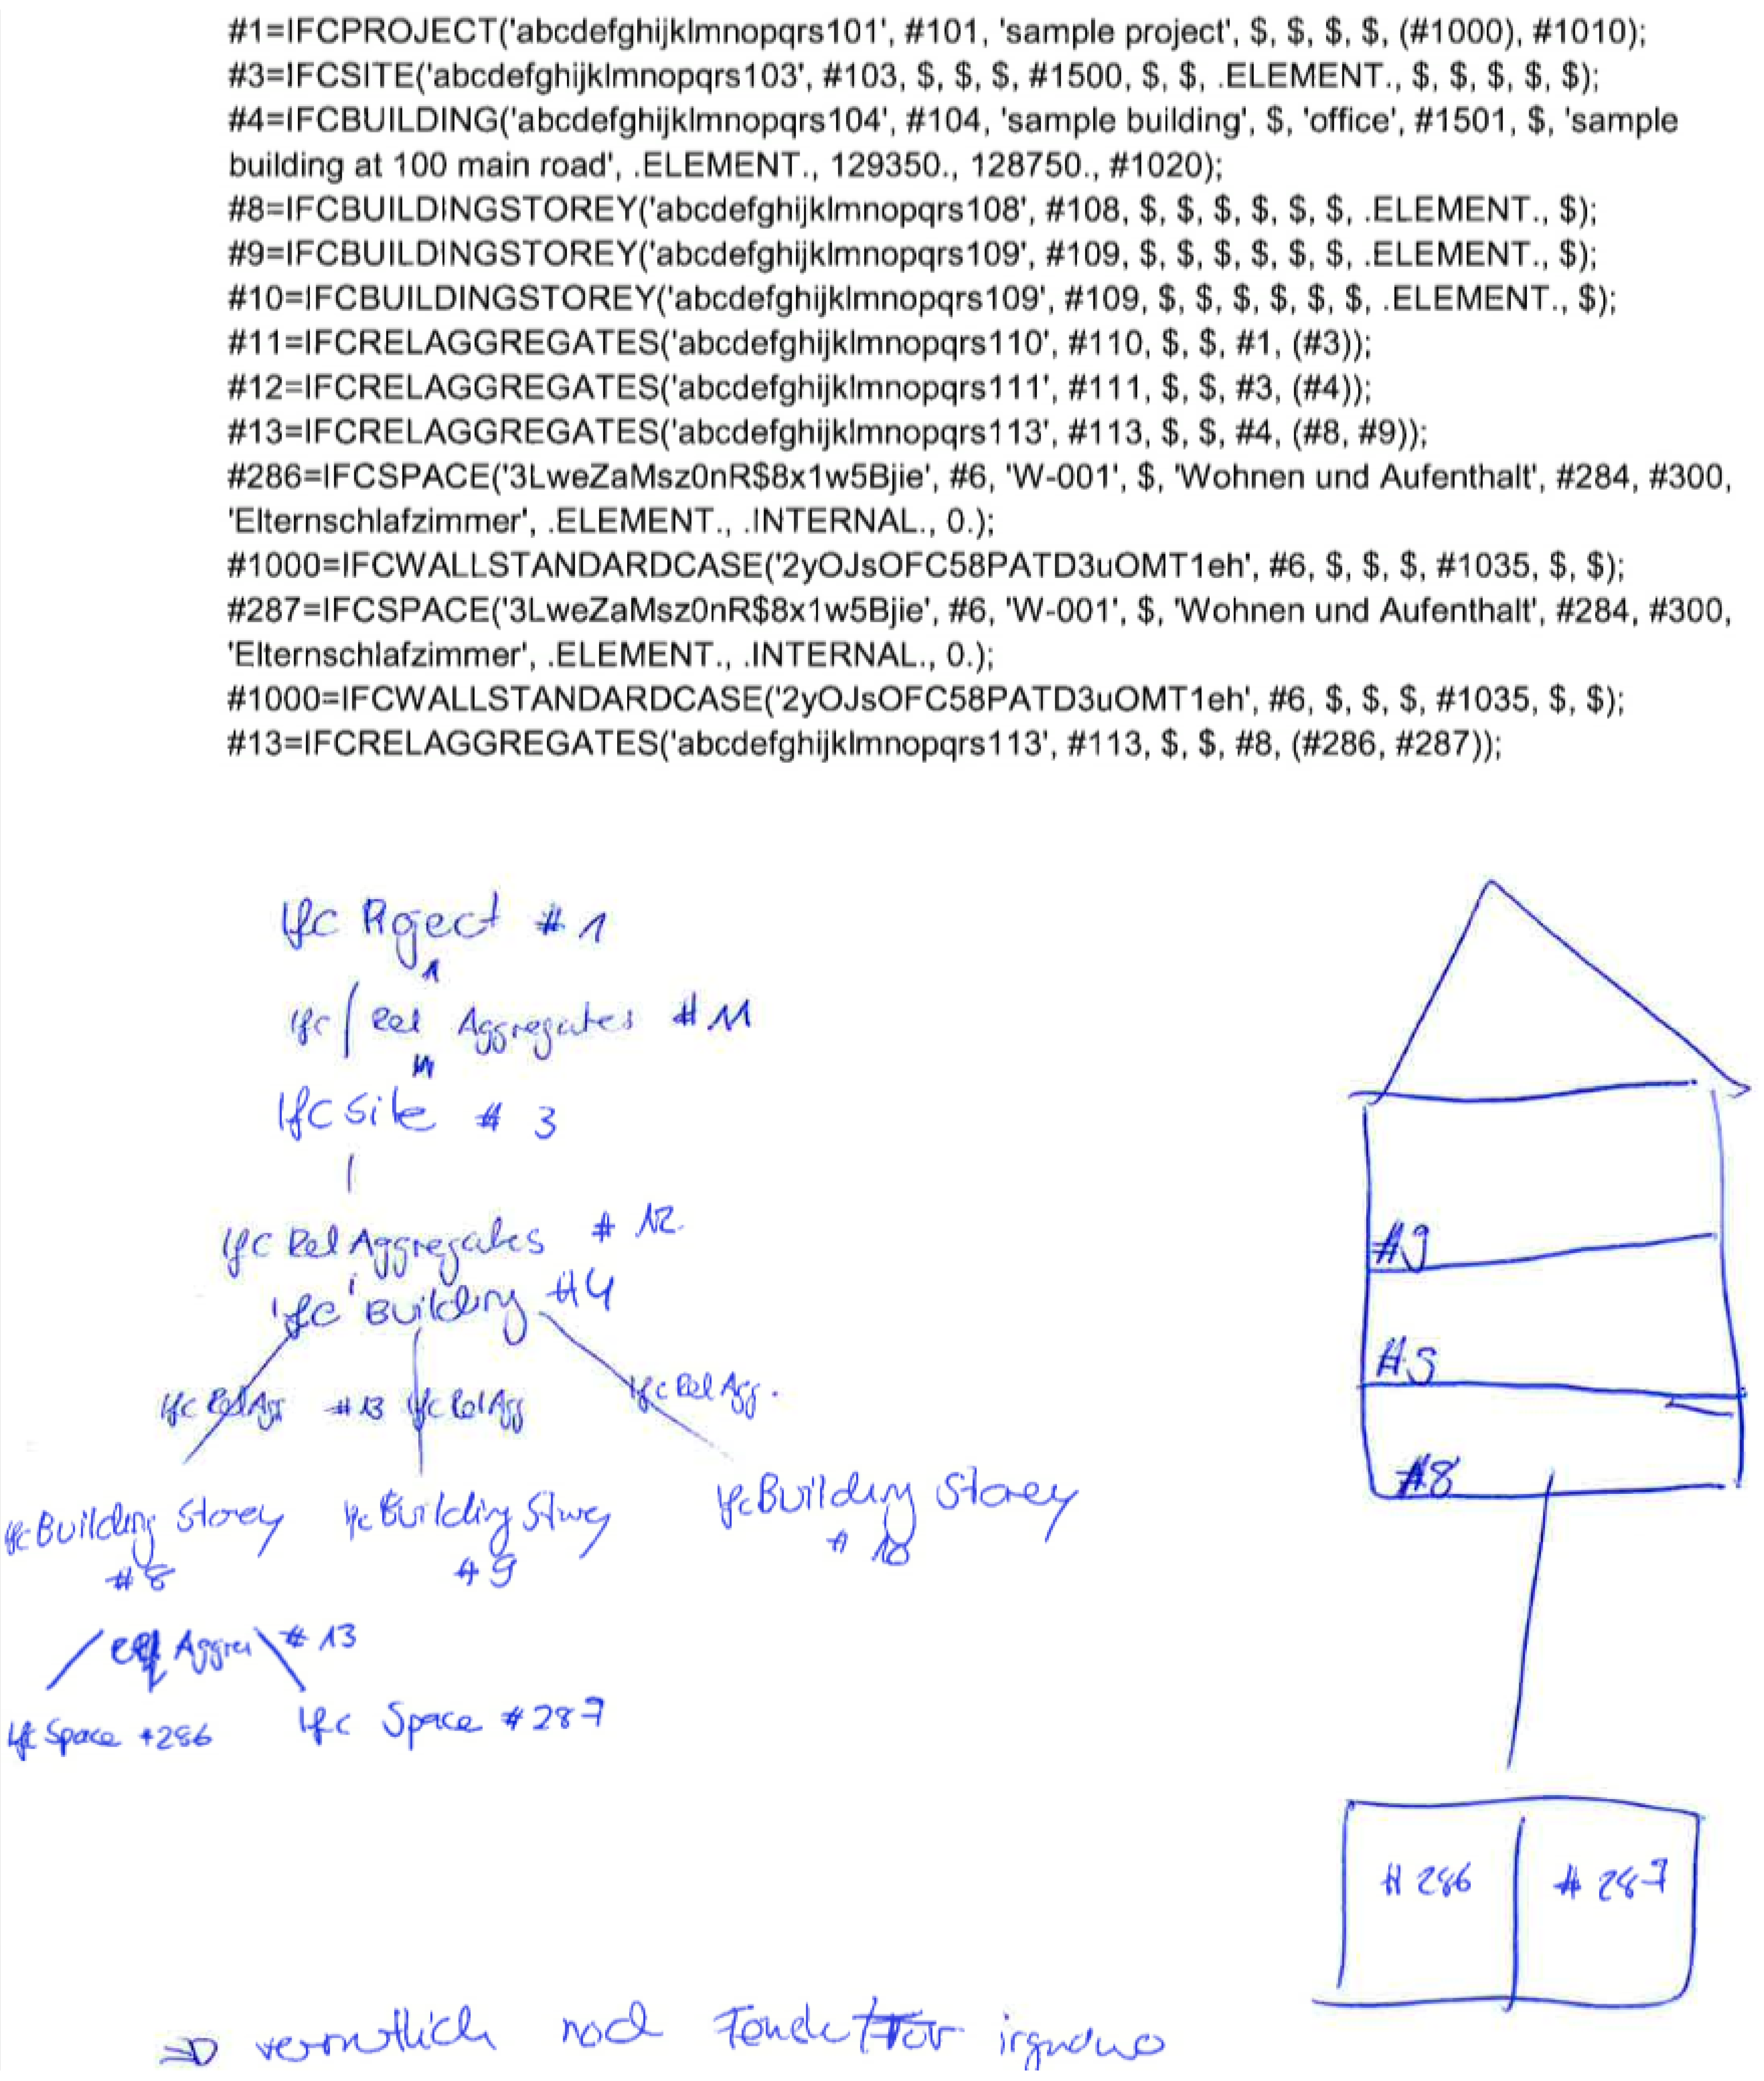 #1=IFCPROJECT('abcdefghijklmnopqrs101', #101, 'sample project', $, $, $, $, (#1000), #1010);
#3=IFCSITE('abcdefghijklmnopqrs103', #103, $, $, $, #1500, $, $, .ELEMENT., $, $, $, $, $);
#4=IFCBUILDING('abcdefghijklmnopqrs104', #104, 'sample building', $, 'office', #1501, $, 'sample
building at 100 main road', .ELEMENT., 129350., 128750., #1020);
#8=IFCBUILDINGSTOREY('abcdefghijklmnopqrs108', #108, $, $, $, $, $, $, .ELEMENT., $);
#9=IFCBUILDINGSTOREY('abcdefghijklmnopqrs109', #109, $, $, $, $, $, $, .ELEMENT., $);
#10=IFCBUILDINGSTOREY('abcdefghijklmnopqrs109', #109, $, $, $, $, $, $, .ELEMENT., $);
#11=IFCRELAGGREGATES('abcdefghijklmnopqrs110', #110, $, $, #1, (#3));
#12=IFCRELAGGREGATES('abcdefghijklmnopqrs111', #111, $, $, #3, (#4));
#13=IFCRELAGGREGATES('abcdefghijklmnopqrs113', #113, $, $, #4, (#8, #9));
#286=IFCSPACE('3LweZaMsz0nR$8x1w5Bjie', #6, 'W-001', $, 'Wohnen und Aufenthalt', #284, #300,
'Elternschlafzimmer', .ELEMENT., .INTERNAL., 0.);
#1000=IFCWALLSTANDARDCASE('2yOJsOFC58PATD3uOMT1eh', #6, $, $, $, #1035, $, $);
#287=IFCSPACE('3LweZaMsz0nR$8x1w5Bjie', #6, 'W-001', $, 'Wohnen und Aufenthalt', #284, #300,
'Elternschlafzimmer', .ELEMENT., .INTERNAL., 0.);
#1000=IFCWALLSTANDARDCASE('2yOJsOFC58PATD3uOMT1eh', #6, $, $, $, #1035, $, $);
#13=IFCRELAGGREGATES('abcdefghijklmnopqrs113', #113, $, $, #8, (#286, #287));
Ifc Project #1
1
Ifc Rel Aggregates #11
Ifc Site #3
Ifc Rel Aggregates #12
Ifc Building #4
Ifc Rel Agg #13 Ifc Rel Agg Ifc Rel Agg.
Ifc Building Storey Ifc Building Storey Ifc Building Storey
#8 #9 #10
Aggre #13
Ifc Space #286 Ifc Space #287
#9
#8
#286 #287
noch irgendwo